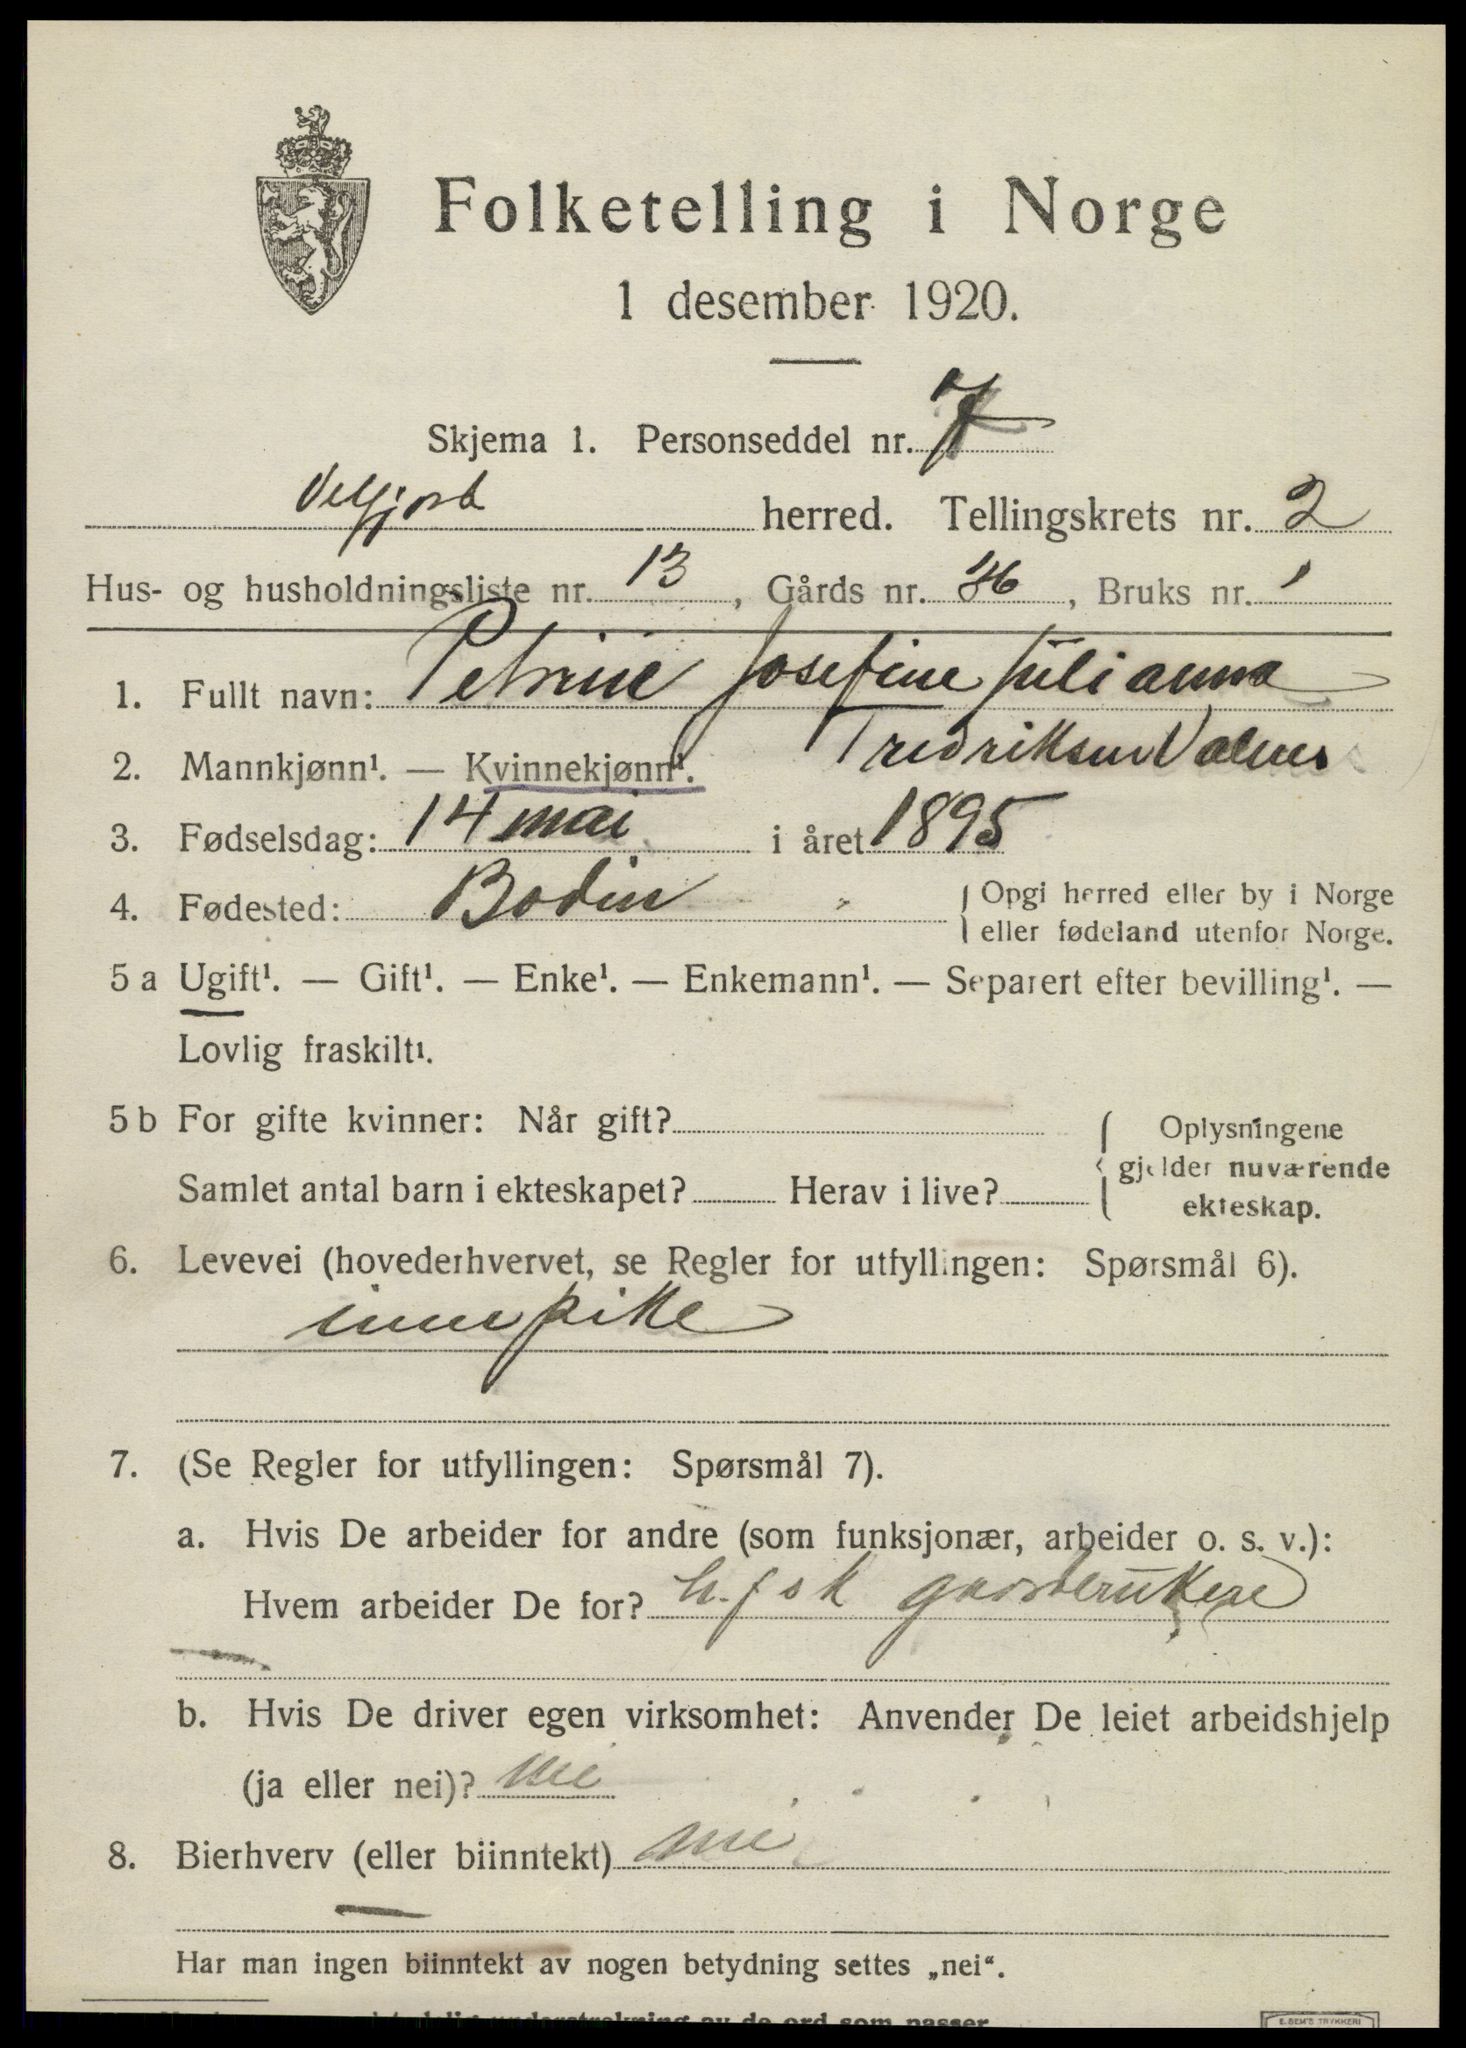 Folketelling i Norge
1 desember 1920.
Skjema 1. Personseddel nr. 7
Velfjord herred. Tellingskrets nr. 2
Hus- og husholdningsliste nr. 13, Gårds nr. 36, Bruks nr. 1
1. Fullt navn: Petrine Josefine Julianna
Fredriksen Valnes
2. Mannkjønn¹. — Kvinnekjønn¹.
3. Fødselsdag: 14 mai i året 1895
4. Fødested: Bodin
Opgi herred eller by i Norge
eller fødeland utenfor Norge.
5 a Ugift¹. — Gift¹. — Enke¹. — Enkemann¹. — Separert efter bevilling¹. —
Lovlig fraskilt¹.
5 b For gifte kvinner: Når gift?
Samlet antal barn i ekteskapet? Herav i live?
Oplysningene
gjelder nuværende
ekteskap.
6. Levevei (hovederhvervet, se Regler for utfyllingen: Spørsmål 6).
innepike
7. (Se Regler for utfyllingen: Spørsmål 7).
a. Hvis De arbeider for andre (som funksjonær, arbeider o. s. v.):
Hvem arbeider De for? gardbrukere
b. Hvis De driver egen virksomhet: Anvender De leiet arbeidshjelp
(ja eller nei)? nei
8. Bierhverv (eller biinntekt) nei
Har man ingen biinntekt av nogen betydning settes „nei“.
understrekning av de ord som passer
E. SEM'S TRYKKERI